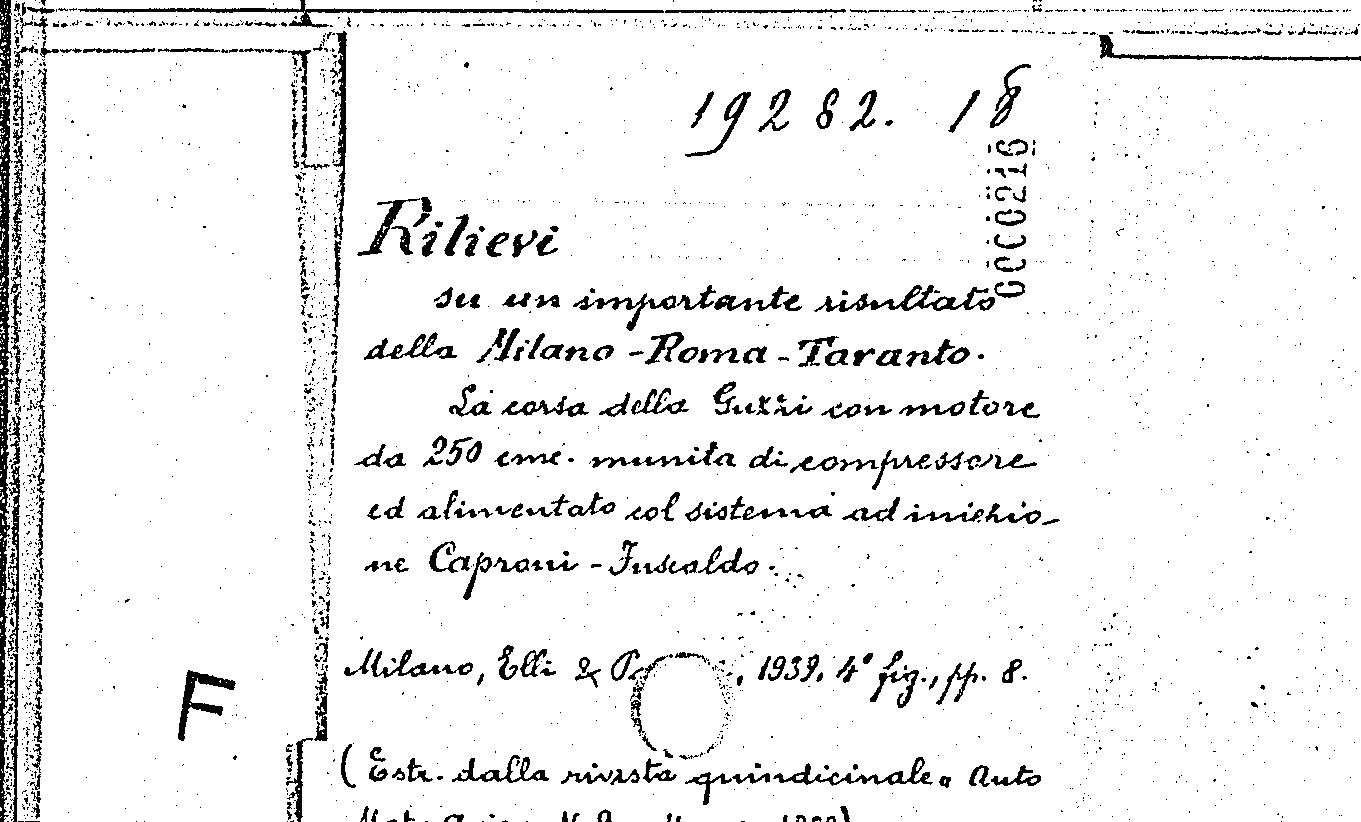 19282. 18
0000216
Rilievi
su un importante risultato
della Milano-Roma-Taranto.
La corsa della Guzzi con motore
da 250 cmc. munita di compressore
ed alimentato col sistema ad iniezio-
ne Caproni-Fuscaldo.
Milano, Elli & , 1939. 4° fig., pp. 8.
F
(Estr. dalla rivista quindicinale "Auto